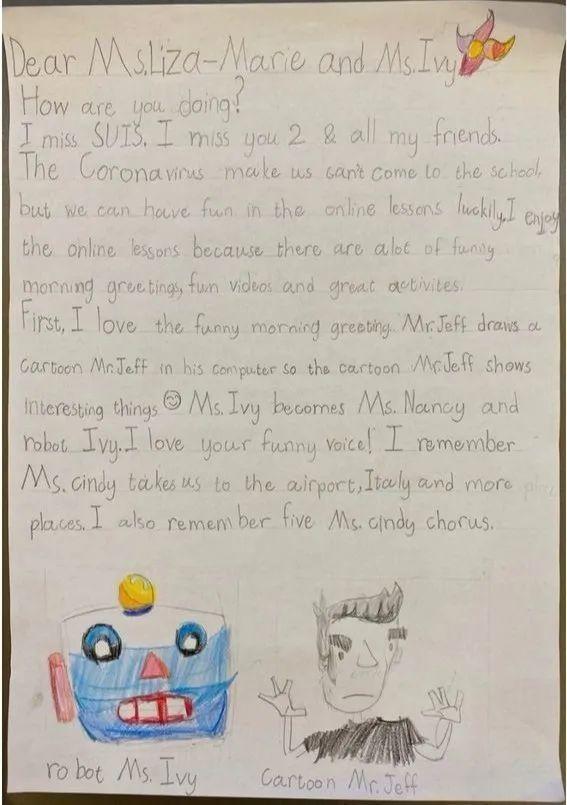 Dear Ms.Liza-Marie and Ms.Ivy
How are you doing?
I miss SUIS. I miss you 2 & all my friends.
The Coronavirus make us can't come to the school,
but we can have fun in the online lessons luckily.I enjoy
the online lessons because there are alot of funny
morning greetings, fun videos and great activites.
First, I love the funny morning greeting. Mr.Jeff draws a
cartoon Mr.Jeff in his computer so the cartoon Mr.Jeff shows
interesting things 😊 Ms. Ivy becomes Ms. Nancy and
robot Ivy.I love your funny voice! I remember
Ms. cindy takes us to the airport, Italy and more
places. I also remember five Ms. cindy chorus.
robot Ms. Ivy
Cartoon Mr.Jeff